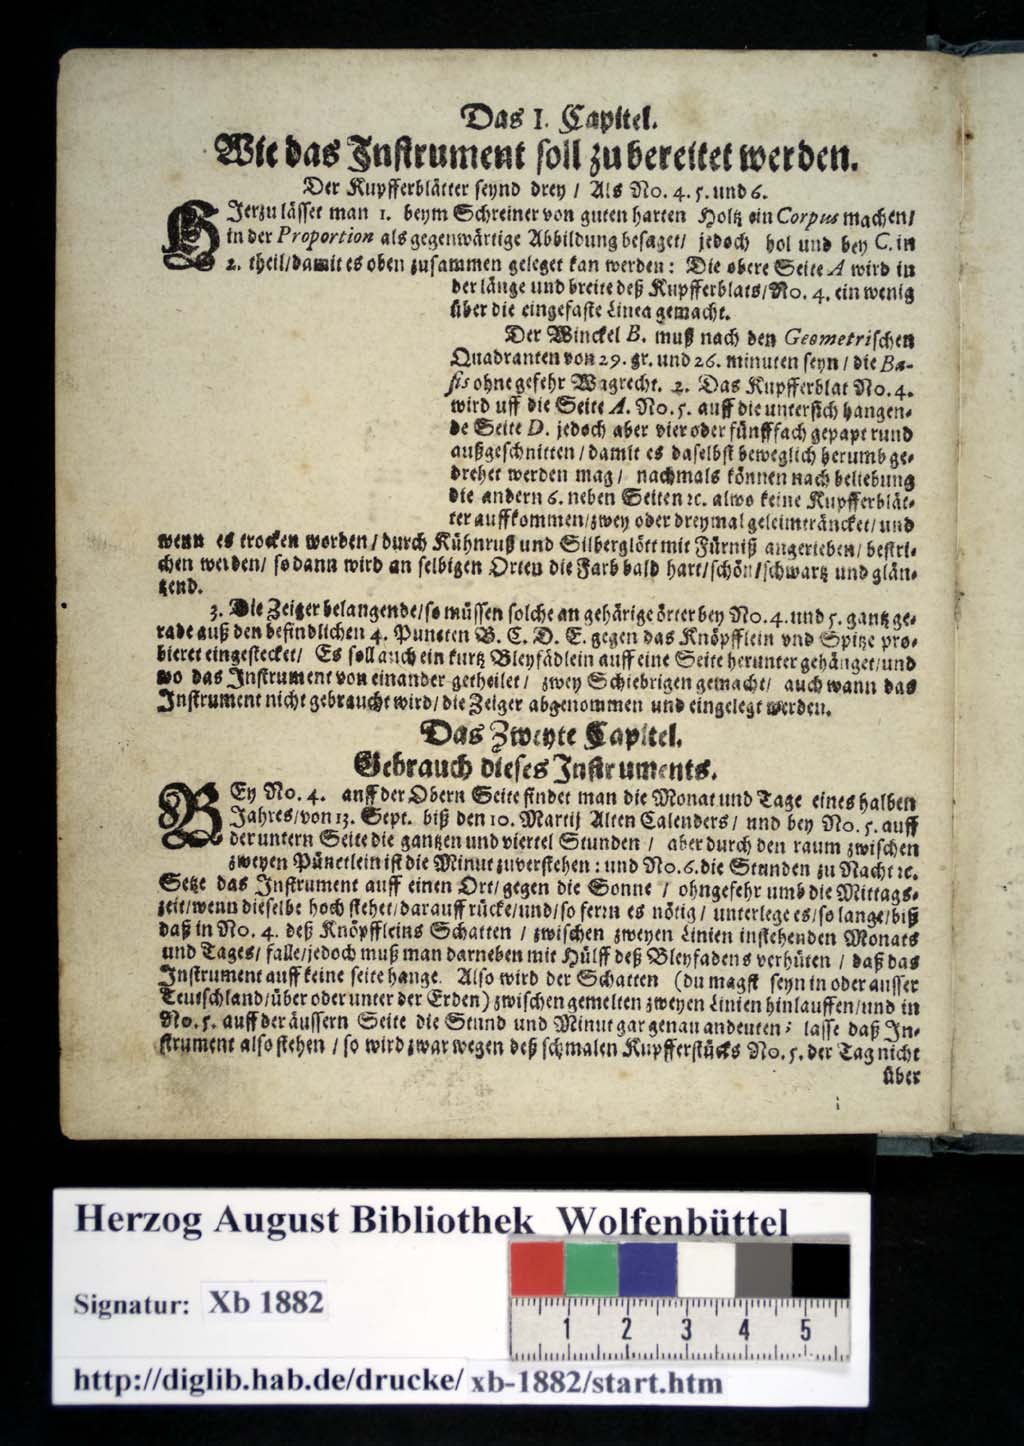 Das I. Capitel.
Wie das Instrument soll zubereitet werden.
Der Kupfferblätter seynd drey / Als No. 4. 5. und 6.
HIerzu lässet man 1. beym Schreiner von guten harten Holtz ein Corpus machen/
in der Proportion als gegenwärtige Abbildung besaget/ jedoch hol und bey C. in
2. theil/damit es oben zusammen geleget kan werden: Die obere Seite A wird in
der länge und breite deß Kupfferblats/No. 4. ein wenig
über die eingefaste Linea gemacht.
Der Winckel B. muß nach den Geometrischen
Quadranten von 29. gr. und 26. minuten seyn / die Ba-
sis ohngefehr Wagrecht. 2. Das Kupfferblat No. 4.
wird uff die Seite A. No. 5. auff die untersich hangen-
de Seite D. jedoch aber vier oder fünfffach gepapt rund
außgeschnitten / damit es daselbst beweglich herumb ge-
drehet werden mag / nachmals können nach beliebung
die andern 6. neben Seiten ꝛc. alwo keine Kupfferblät-
ter auffkommen/zwey oder dreymal geleimträncket/ und
wenn es trocken worden / durch Kühnruß und Silberglött mit Fürniß angerieben/ bestri-
chen werden/ so dann wird an selbigen Orten die Farb bald hart/schön/schwartz und glän-
tzend.
3. Die Zeiger belangende/so müssen solche an gehärige örter bey No. 4. und 5. gantz ge-
rade auß den befindlichen 4. Puncten B. C. D. E. gegen das Knöpfflein vnd Spitze pro-
bieret eingestecket/ Es soll auch ein kurtz Bleyfädlein auff eine Seite herunter gehänget/und
wo das Instrument von einander getheilet / zwey Schiebrigen gemacht/ auch wann das
Instrument nicht gebraucht wird/die Zeiger abgenommen und eingelegt werden.
Das Zweyte Capitel.
Gebrauch dieses Instruments.
BEy No. 4. anff der Obern Seite findet man die Monat und Tage eines halben
Jahres/von 13. Sept. biß den 10. Martij Alten Calenders / und bey No. 5. auff
der untern Seite die gantzen und viertel Stunden / aber durch den raum zwischen
zweyen Pünctlein ist die Minut zuverstehen: und No. 6. die Stunden zu Nacht ꝛc.
Setze das Instrument auff einen Ort/gegen die Sonne / ohngefehr umb die Mittags-
zeit/wenn dieselbe hoch stehet/darauff rücke/und/so ferrn es nötig / unterlege es/so lange/biß
daß in No. 4. deß Knöpffleins Schatten / zwischen zweyen Linien instehenden Monats
und Tages/ falle/jedoch muß man darneben mit Hülff deß Bleyfadens verhüten / daß das
Instrument auff keine seite hange. Also wird der Schatten (du magst seyn in oder ausser
Teutschland/über oder unter der Erden) zwischen gemelten zweyen Linien hinlauffen/und in
No. 5. auff der äussern Seite die Stund und Minut gar genau andeuten; lasse daß In-
strument also stehen / so wird zwar wegen deß schmalen Kupfferstücks No. 5. der Tag nicht
über
Herzog August Bibliothek Wolfenbüttel
Signatur: Xb 1882
1 2 3 4 5
http://diglib.hab.de/drucke/xb-1882/start.htm